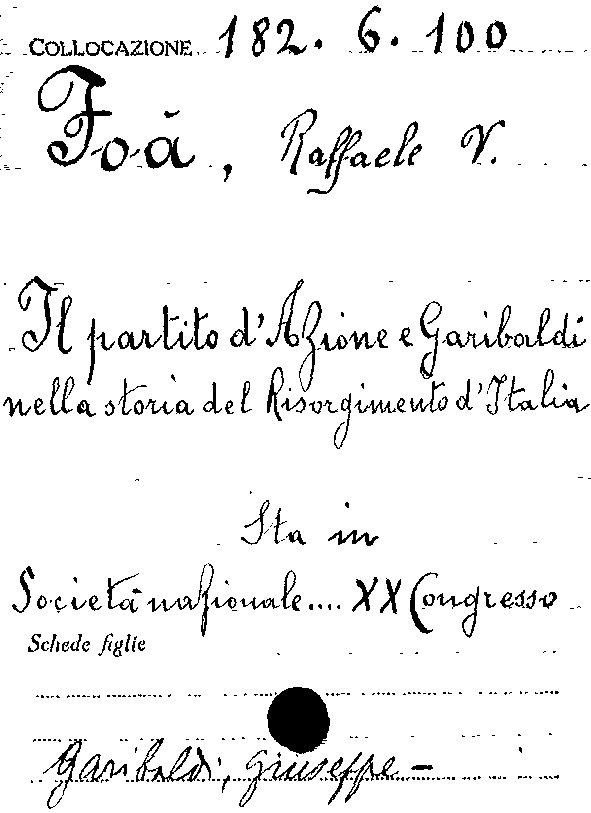 COLLOCAZIONE 182. 6. 100
Foà, Raffaele V.
Il partito d'Azione e Garibaldi
nella storia del Risorgimento d'Italia
Sta in
Società nazionale.... XX Congresso
Schede figlie
Garibaldi, Giuseppe -